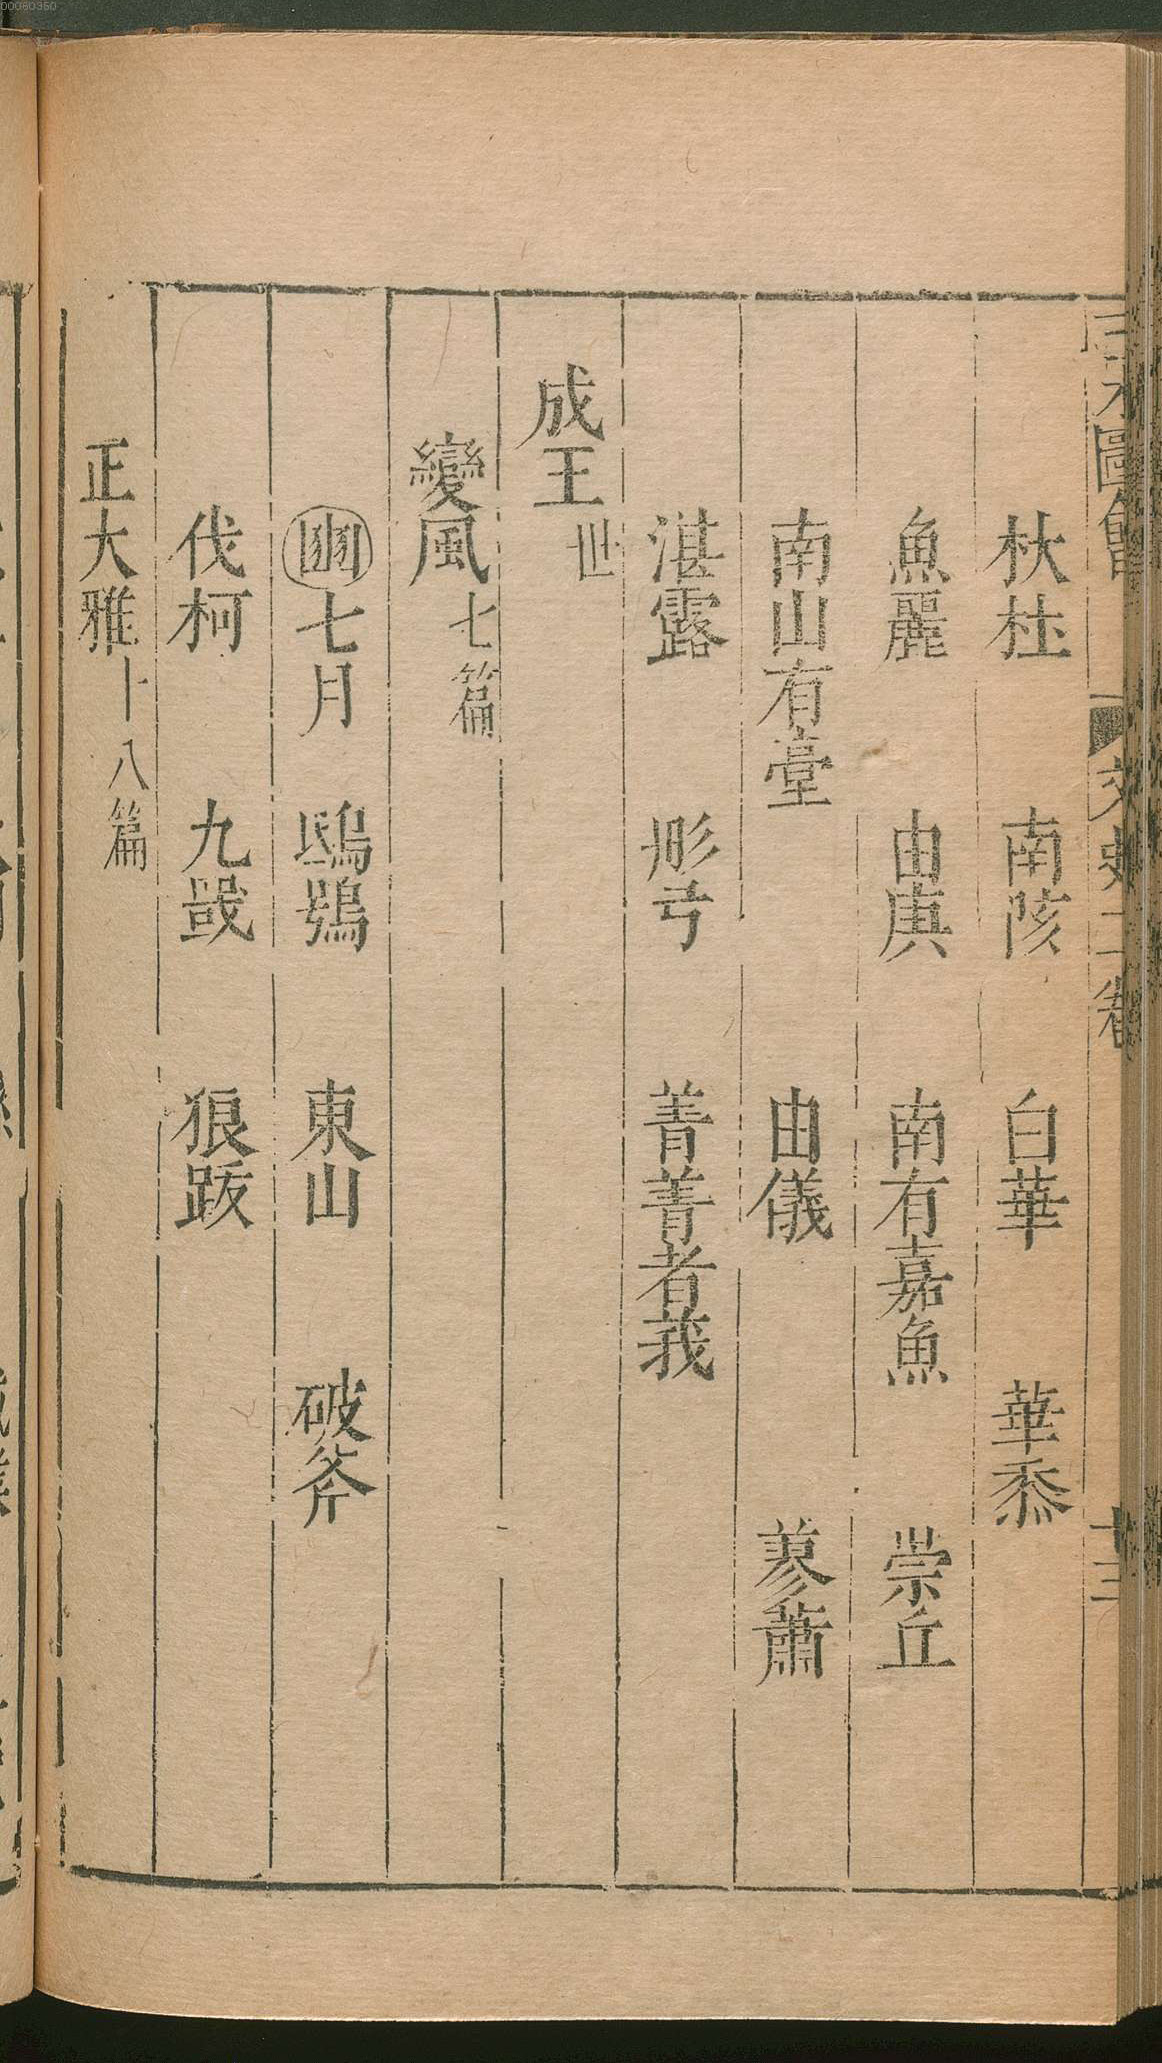 00060360
三才圖會 文史二卷
杕杜 南陔 白華 華黍
魚麗 由庚 南有嘉魚 崇丘
南山有臺 由儀 蓼蕭
湛露 彤弓 菁菁者莪
成王世
變風七篇
豳七月 鴟鴞 東山 破斧
伐柯 九罭 狼跋
正大雅十八篇